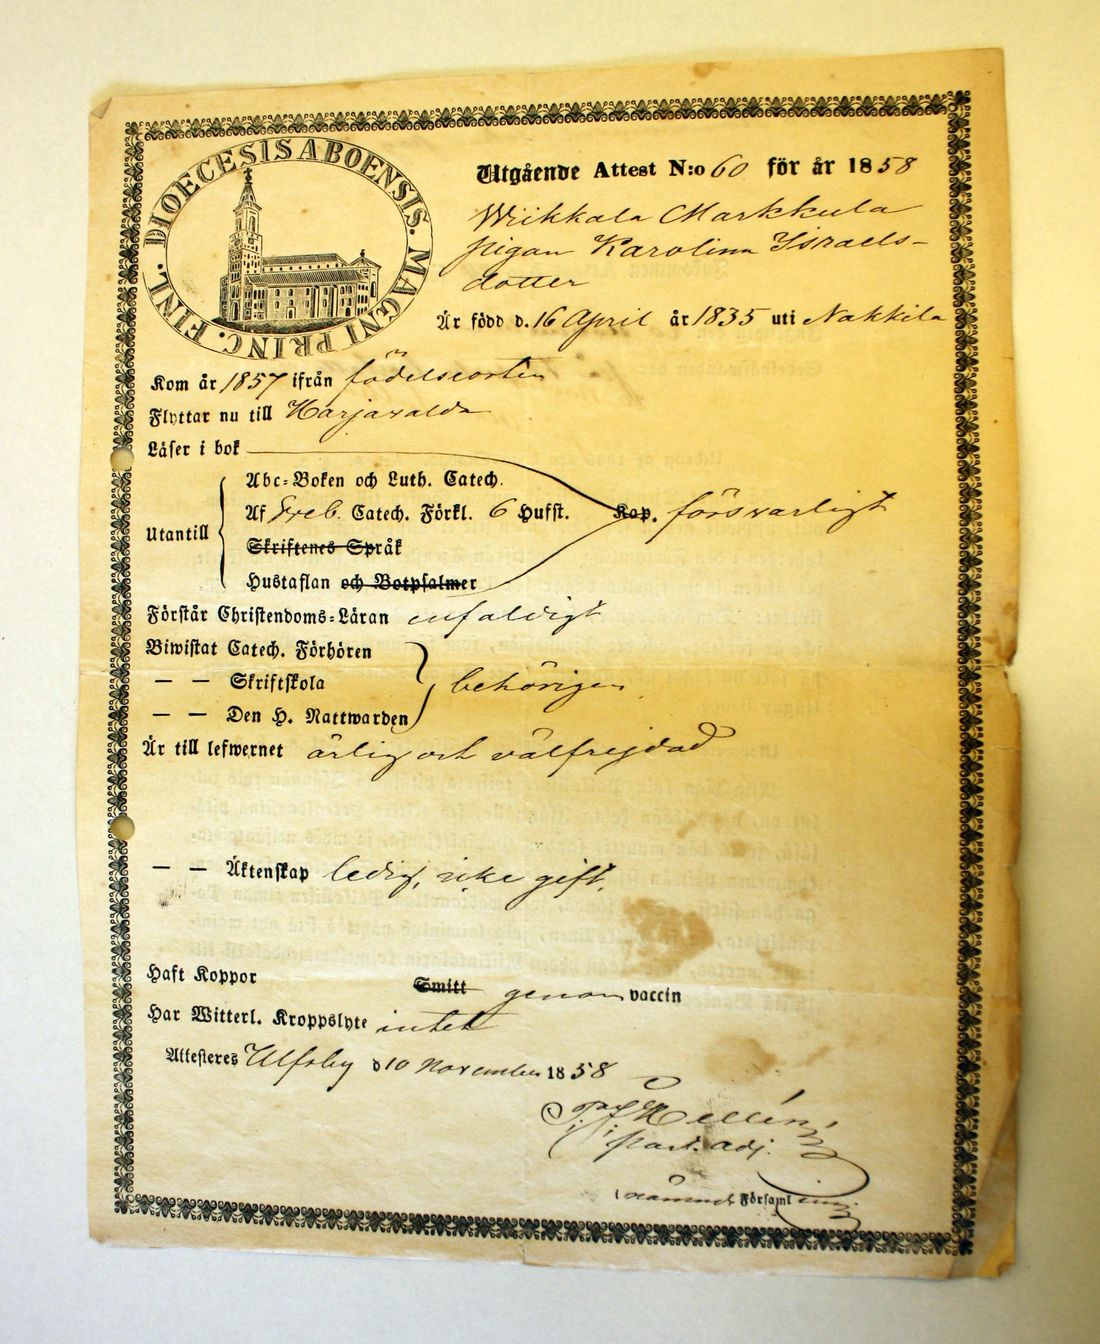 DIOECESIS ABOENSIS. MAGNI PRINC. FINL.
Utgående Attest N:o 60 för år 1858
Wiikkala Markkula
pigan Karolina Israels-
dotter
Är född d. 16 April år 1835 uti Nakkila
Kom år 1857 ifrån födelseorten
Flyttar nu till Harjavalda
Läser i bok
Abc-Boken och Luth. Catech.
Utantill Af Sveb. Catech. Förkl. 6 Hufst. Kap. försvarligt
Skriftenes Språk
Hustaflan och Botpsalmer
Förstår Christendoms-Läran enfaldigt
Biwistat Catech. Förhören
— — Skriftskola behörigen
— — Den H. Nattwarden
Är till lefwernet ärlig och välfrejdad
— — Äktenskap ledig, icke gift.
Haft Koppor Smitt genom vaccin
Har Witterl. Kroppslyte intet
Attesteres Ulfsby d 10 November 1858
Hellén
past. adj.
Församl